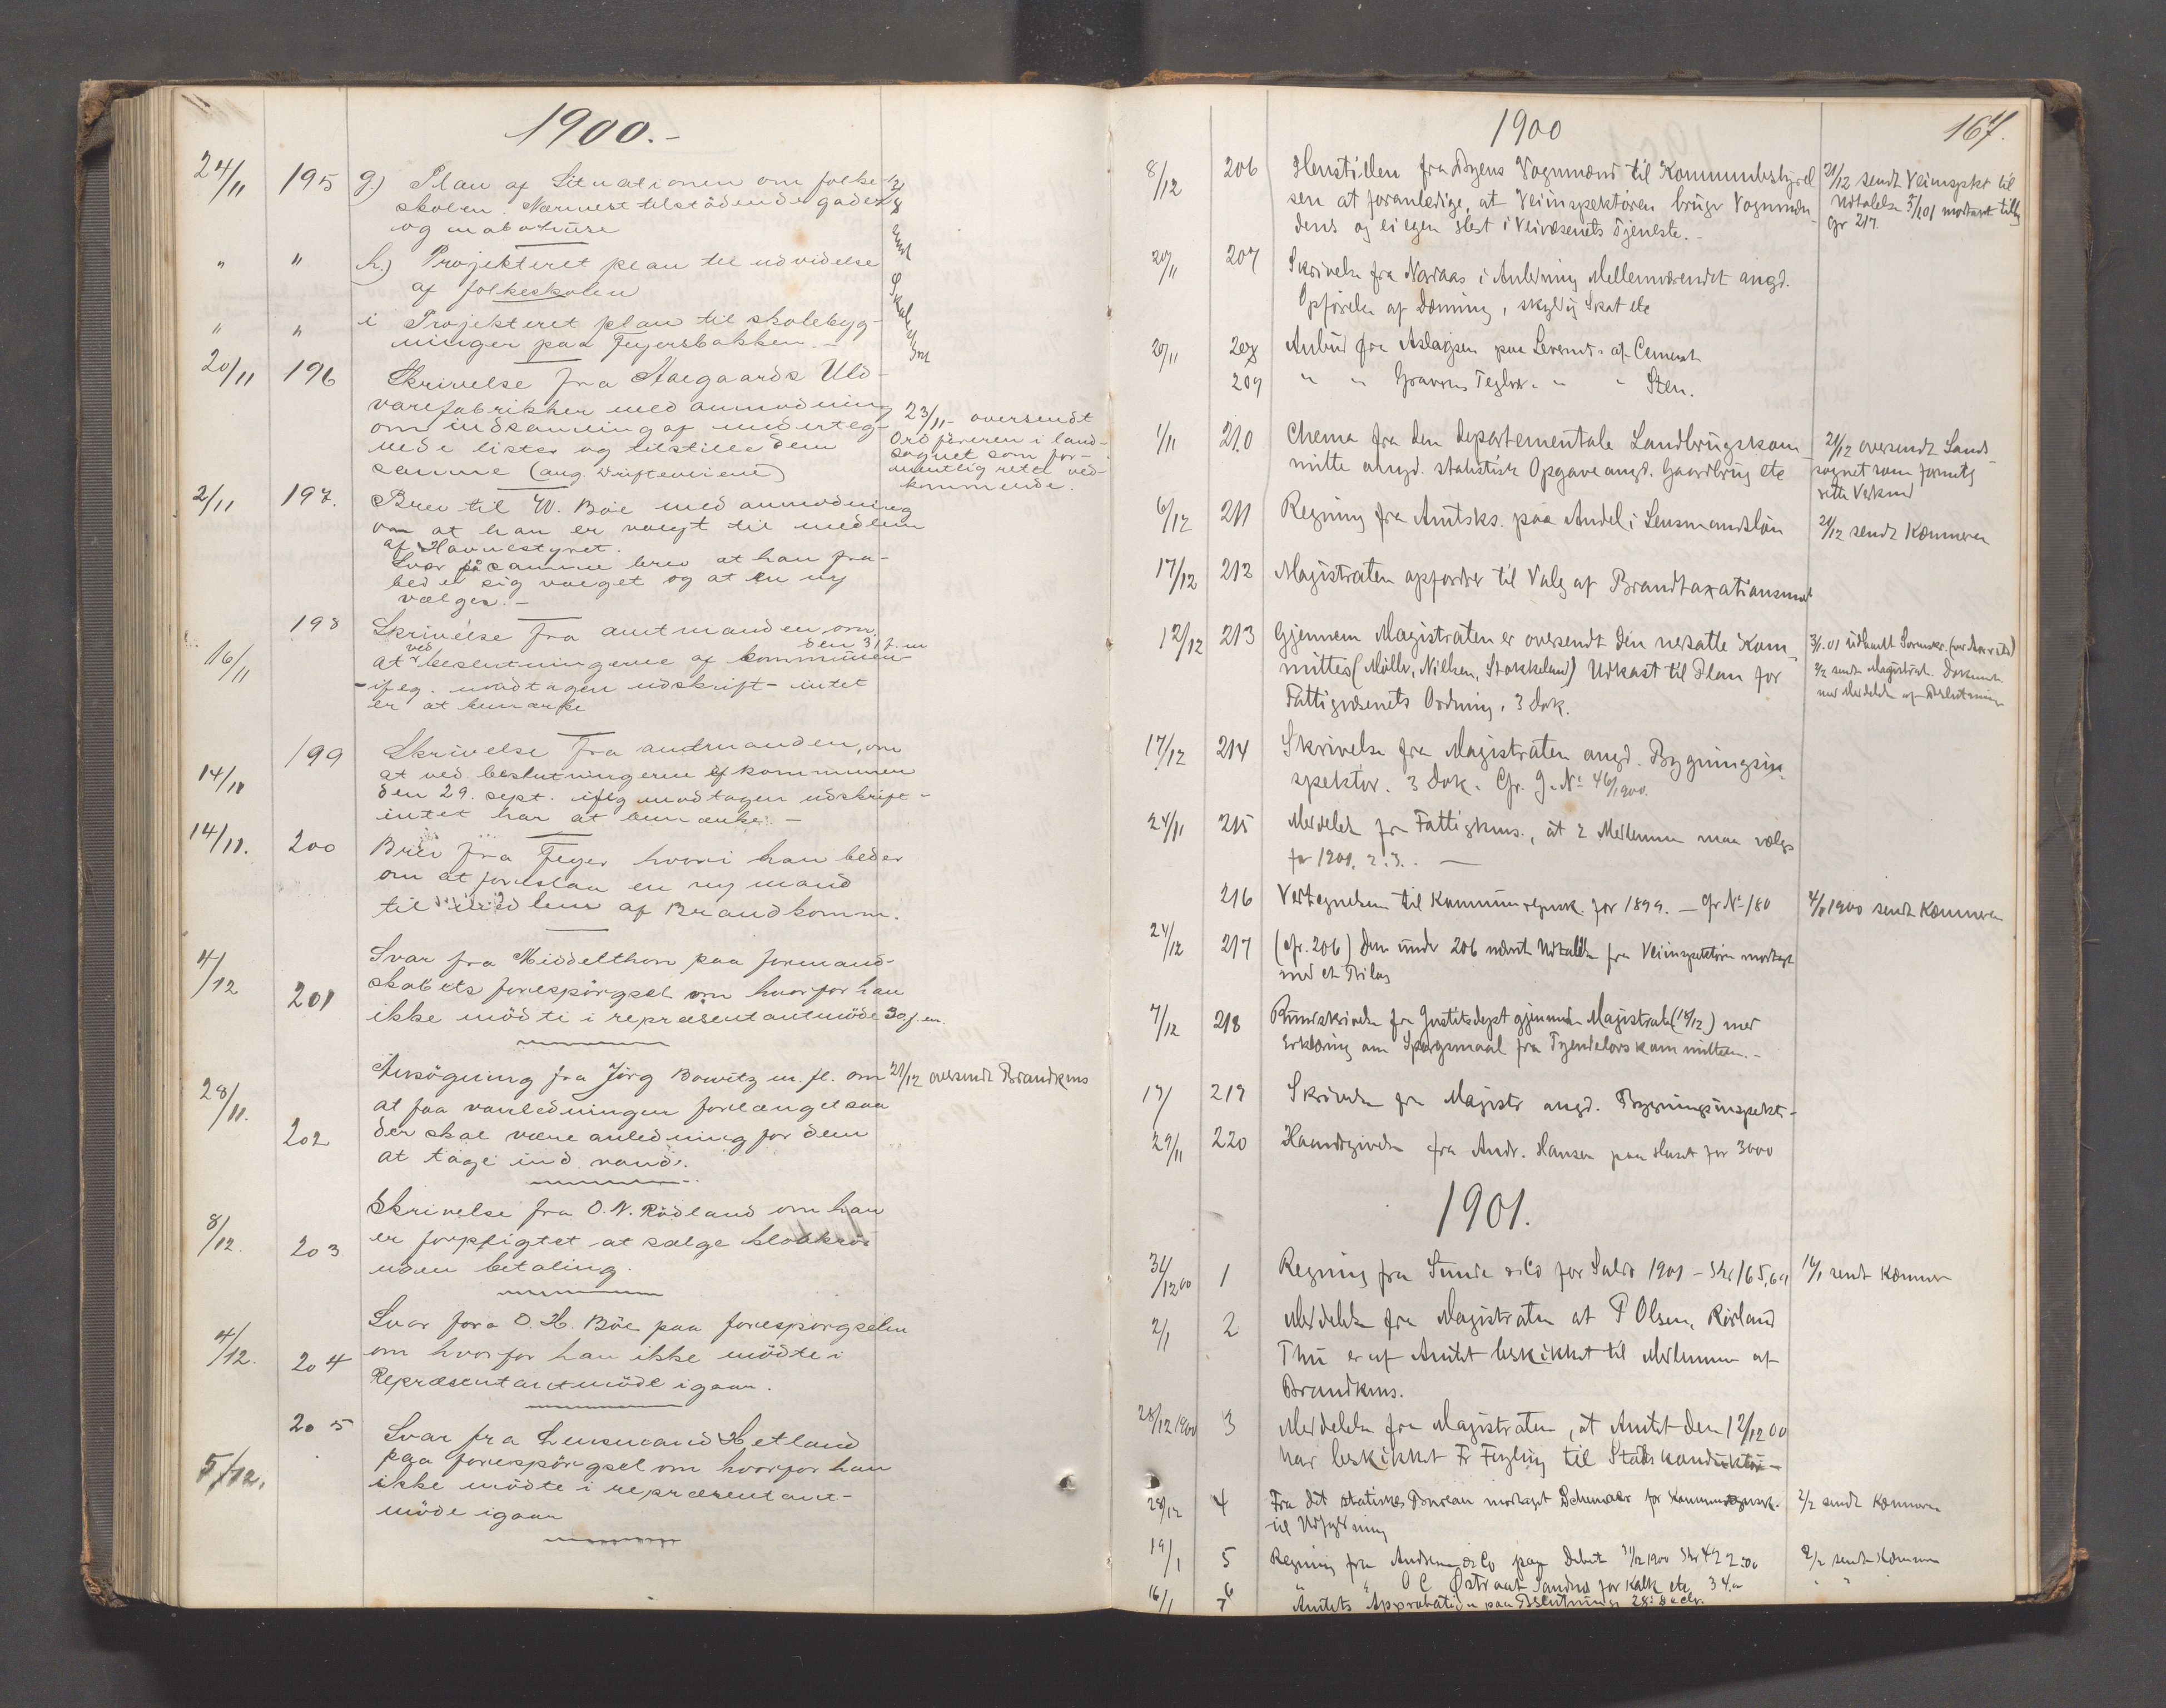 1900.-
24/11 195 g.) Plan af Situationen om folke-
skolen. Nærmest tilstödende gader
og
" " h.) Projekteret plan til udvidelse
af folkeskolen
" " i Projekteret plan til skolebyg-
ninger paa Feyersbakken.-
20/11 196 Skrivelse fra Aalgaards Uld-
varefabrikker med anmodning
om indsamling af underteg-
nede lister og tilstille dem
samme (ang. Drifteveiene)
23/11- oversendt
Ordföreren i land-
sognet som for-
mentlig rette ved-
kommende.
2/11 197. Brev til W. Böe med anmodning
om at han er valgt til medlem
af Havnestyret.
Svar på samme brev at han fra-
beder sig valget og at en ny
vælges.-
16/11 198 Skrivelse fra amtmanden om
at ved beslutningerne af kommunen den 31 f. m
- iflg. modtagen udskrift - intet
er at bemærke
14/11 199 Skrivelse fra amtmanden, om
at ved beslutningerne af kommunen
den 29. sept. iflg modtagen udskrift -
intet har at bemærke.-
14/11. 200 Brev fra Feyer hvori han beder
om at foreslaa en ny mand
til medlem af Brandkomm.
4/12 201 Svar fra Middelthon paa formand-
skabets forespörgsel om hvorfor han
ikke mödte i repræsentantmöde 30. f. m.
28/11. 202 Ansögning fra Jörg Bowitz m. fl. om
at faa vanledningen forlænget saa
der skal være anledning for dem
at tage ind vand.
21/12 oversendt Brandkms
8/12. 203 Skrivelse fra O. N. Rödland om han
er forpligtet at sælge kloakrör
uden betaling.
4/12. 204 Svar fra O. H. Böe paa forespörgselen
om hvorfor han ikke mödte i
Repræsentantmöde igaar.
5/12. 205 Svar fra Lensmand Hetland
paa forespörgsel om hvorfor han
ikke mödte i repræsentant-
möde igaar
1900
167.
8/12 206 Henstillen fra Byens Vognmænd til Kommunebestyrel
sen at foranledige, at Veiinspektören bruger Vognmæn-
dens og ei egen Hest i Veivæsenets Tjeneste.-
21/12 sendt Veiinspkt til
Udtalelse modtat
Cfr 217.
20/11 207 Skrivelse fra Navaas i Anledning Mellemværendet angd.
Opförelse af Dæmning, skyldig Skat etc
20/11 208 Anbud fra Aslagsen paa Leverandse af Cement
209 " " Gravrens Teglv. " " Sten.
1/11 210 Chema fra den departementale Landbrugskom-
mitte angd. statistisk Opgave angd. Gaardbrug etc
21/12 oversendt Lands-
sognet som formtlg
rette Vedkmd
6/12 211 Regning fra Amtsks. paa Andel i Lensmandslön
21/12 sendt Kæmneren
17/12 212 Magistraten opfordrer til Valg af Brandtaxationsmd
12/12 213 Gjennem Magistraten er oversendt den nedsatte Kom-
mittes (Möller, Nielsen, Stokkeland) Udkast til Plan for
Fattigvæsenets Ordning. 3 Dok.
2/2 sendt Magistrat. Dokumt
med Meddelelse af Beslutning
17/12 214 Skrivelse fra Magistraten angd. Bygningsin-
spektör. 3 Dok. Cfr. J. No 46/1900.
24/11 215 Meddelelse fra Fattigkms., at 2 Medlemmer maa vælges
for 1901. 2. 3. -
216 Vedtegnelsen til Kommuneregnsk. for 1899. - cfr No 180
4/1 1900 sendt Kæmneren
24/12 217 (cfr. 206) Den under 206 nævnte Udtalelse fra Veiinspektören modtaget
med et Bilag
7/12 218 Rundskrivelse fra Justitsdept gjennem Magistraten (14/12) med
Erklæring om Spörgsmaal fra Tyendelovskommitteen.-
17/ 219 Skrivelse fra Magistr angd. Bygningsinspekt-
29/11 220 Haandgivelse fra Andr. Hansen paa Huset for 3000
1901.
31/12 00 1 Regning fra Sunde & Co for Saldo 1901 - Kr 165,64
14/1 sendt Kæmner
2/1 2 Meddelelse fra Magistraten at P Olsen, Rödland
Thu er af Amtet beskikket til Medlemmer af
Brandkms.
28/12 1900 3 Meddelelse fra Magistraten, at Amtet den 12/12 00
har beskikket Fr Fegling til Stadskonduktör-
28/12 4 Fra det statistiske Bureau modtaget Schemaer for Kommuneregnsk.
til Udfyldning
2/2 sendt Kæmneren
19/1 5 Regning fra Andersen & Co paa Debet 31/12 1900 Kr 422.00
2/2 sendt Kæmnern
16/1 6 " " O C Östraat Sandnes for Kalk etc 34.-
" "
7 Amtets Approbation paa Beslutning 28: Decbr.